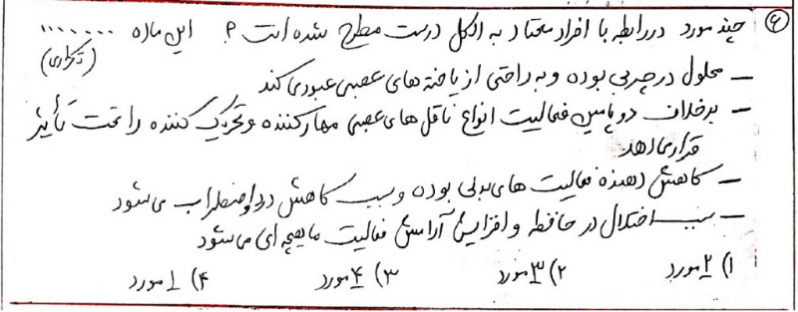 ۶) چند مورد در رابطه با افراد معتاد به الکل درست مطرح شده است؟ این ماده ........
(تکراری)
– محلول در چربی بوده و به راحتی از یاخته های عصبی عبور می کند
– برخلاف دوپامین فعالیت انواع ناقل های عصبی مهار کننده و تحریک کننده را تحت تأثیر
قرار می دهد
– کاهش دهنده فعالیت های بدنی بوده و سبب کاهش درد و اضطراب می شود
– سبب اختلال در حافظه و افزایش آرامش فعالیت ماهیچه ای می شود
۱) ۲ مورد ۲) ۳ مورد ۳) ۴ مورد ۴) ۱ مورد